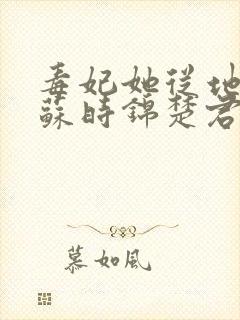 毒妃她從地
蘇時錦楚君
慕如風